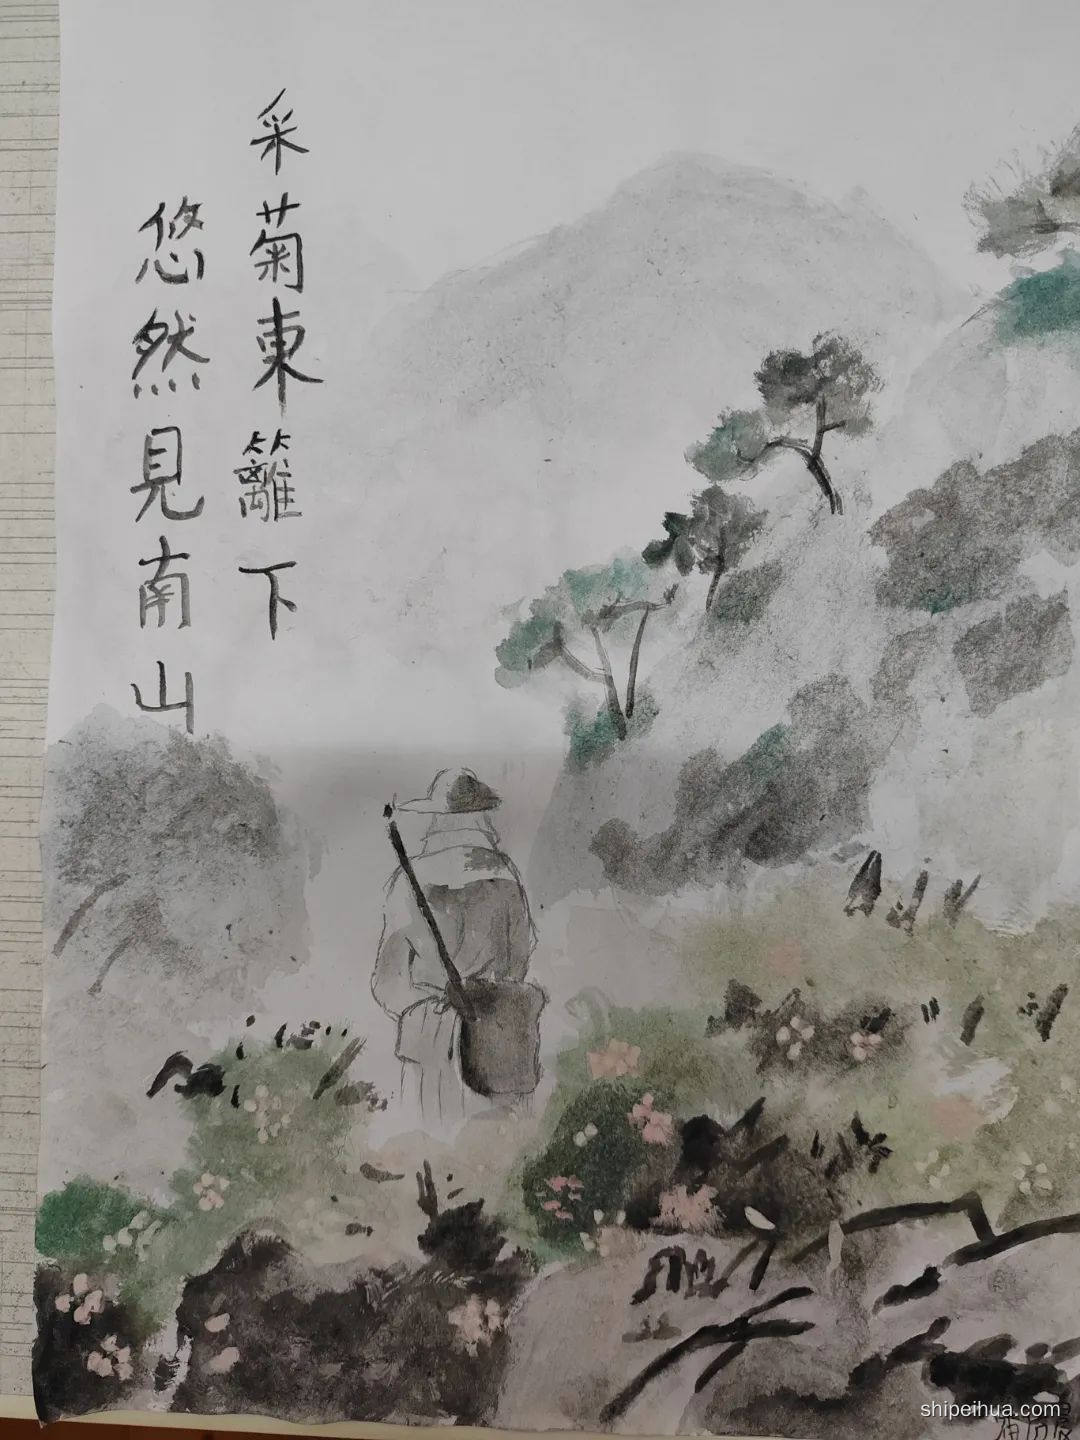 采菊東籬下
悠然見南山
shipeihua.com